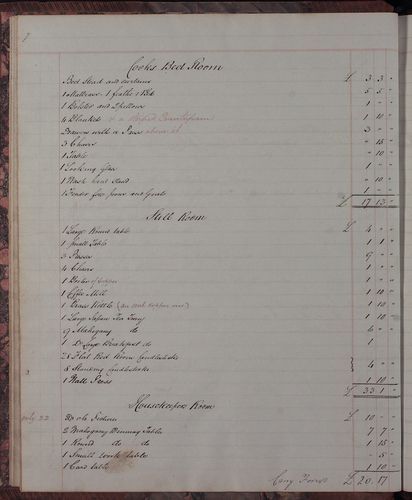 Cooks Bed Room
Bed Stead and curtains £ 3 3 "
1 Mattrass 1 feather Bed 5 5 "
1 Bolster and 2 pillows 1 " "
4 Blankets & a Worked Counterpane 1 10 "
Drawers with a Press above it 3 " "
3 Chairs " 15 "
1 Table " 10 "
1 Looking Glass 1 " "
1 Wash hand stand " 10 "
1 Fender fire irons and Grate 1 " "
£ 17 13 "
Still Room
1 Large Round table £ 4 " "
1 Small Table 1 1 "
3 Presses 9 " "
4 Chairs 1 " "
1 Boiler of copper 1 " "
1 Coffee Mill 1 10 "
1 Brass Kettle 1 10 "
1 Large Japan Tea Tray 1 10 "
9 Mahogany do 4 " "
1 Do Large Breakfast do 1
28 Flat Bed Room Candlesticks
8 Standing Candlesticks 4 " "
1 Wall Press 1 10 "
£ 33 1 "
Housekeepers Room
£ 10 " "
2 Mahogany Dining Tables 7 7 "
1 Round do do 1 15 "
1 Small work table " 5 "
1 Card table 1 10 "
Carry Forwd £ 20 17